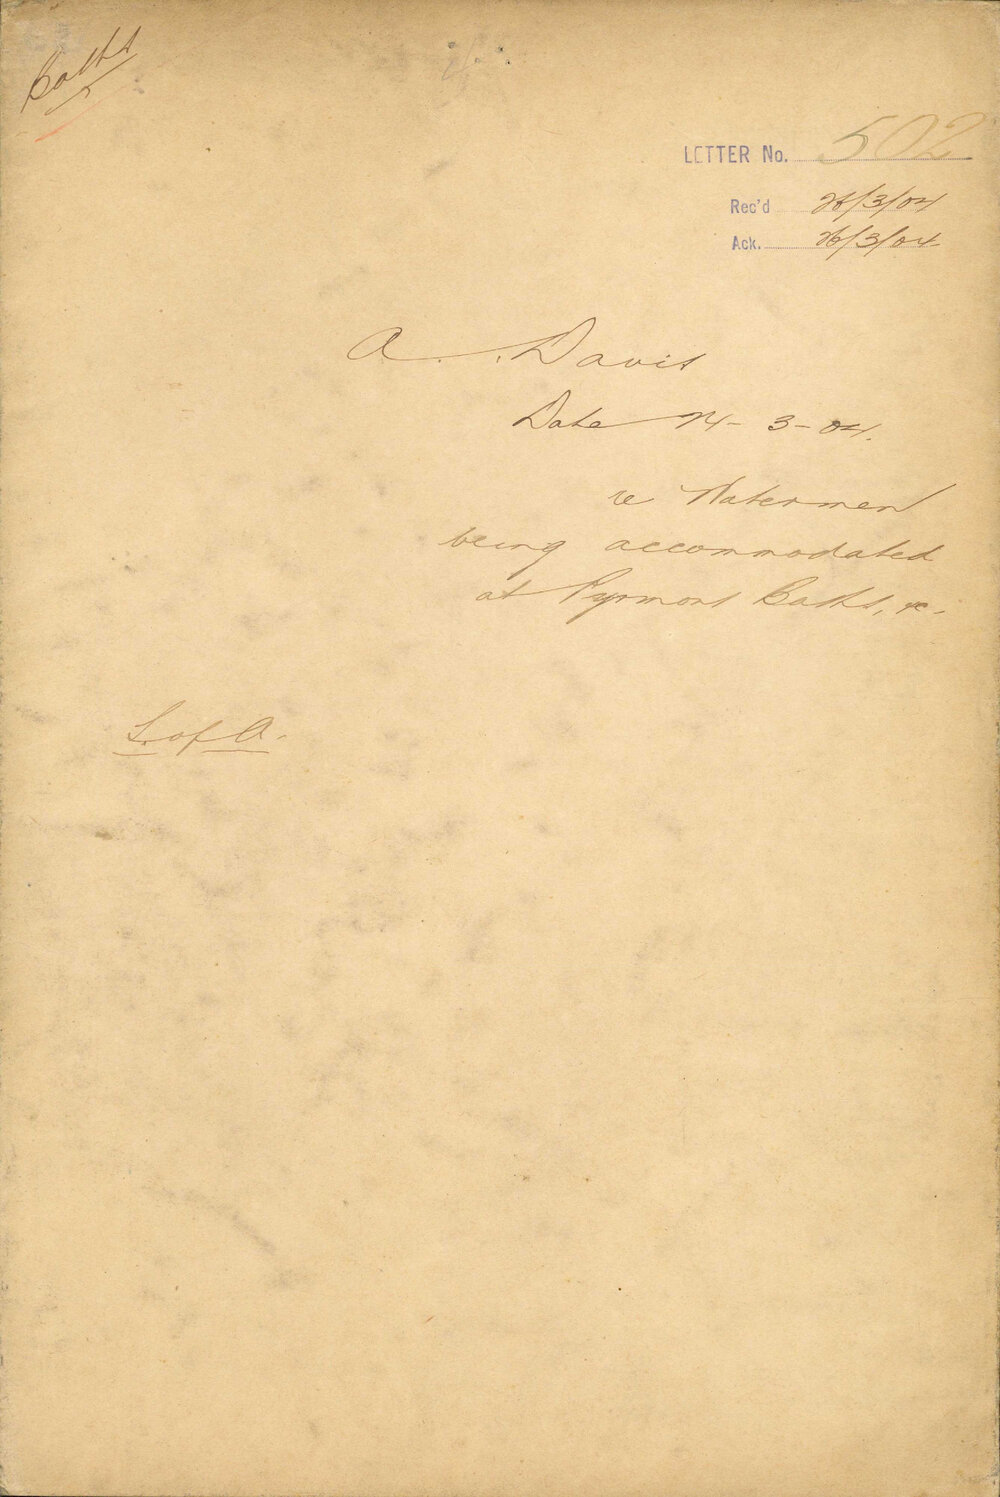 Baths
LETTER No. 502
Rec'd 26/3/04
Ack. 26/3/04
A. Davis
Date 24-3-04.
re Watermen
being accommodated
at Pyrmont Baths, &c.
S. of A.